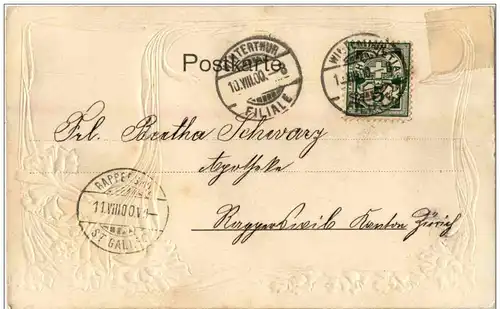 Postkarte
WINTERTHUR
10.VIII.00.-8
FILIALE
HELVETIA
5
Frl. Bertha Schwarz
Apotheke
Rapperswil Kanton Zürich
RAPPERSWIL
11.VIII.00.
ST GALLEN